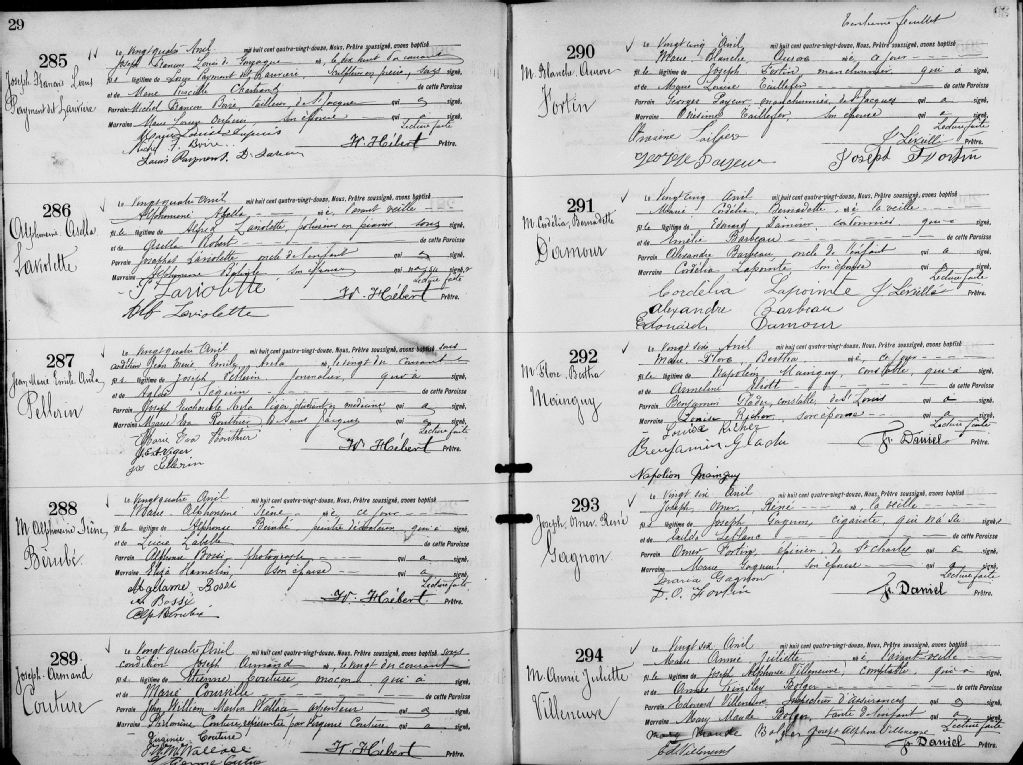 29
285
Joseph François Louis
Payment dit Larivière
Le Vingt quatre Avril mil huit cent quatre-vingt-douze, Nous, Prêtre soussigné, avons baptisé
Joseph François Louis de né, le dix huit du courant
fils légitime de Louis Payment dit Larivière sculpteur en pierre, signé,
et de Marie de cette Paroisse
Parrain Michel François Boire, tailleur, de St Jacques qui a signé,
Marraine Marie Louise son épouse qui a signé,
Lecture faite
W. Hébert Prêtre.
286
Alphonsine Azella
Laviolette
Le Vingt quatre Avril mil huit cent quatre-vingt-douze, Nous, Prêtre soussigné, avons baptisé
Alphonsine née, l'avant veille
fille légitime de Alfred Laviolette, signé,
et de Robert de cette Paroisse
Parrain Josaphat Laviolette oncle de l'enfant qui a signé,
Marraine Alphonsine son épouse qui signé,
Lecture faite
J. Laviolette W. Hébert Prêtre.
Alf Laviolette
287
Jean Marie Emile Avila
Pellerin
Le Vingt quatre Avril mil huit cent quatre-vingt-douze, Nous, Prêtre soussigné, avons baptisé sous
condition Jean Marie Emile Avila né, le vingt du courant
fils légitime de Joseph Pellerin journalier, qui a signé,
et de Aglaé Seguin de cette Paroisse
Parrain Joseph Viger, étudiant en médecine qui a signé,
Marraine Marie Eva Routhier, de Saint Jacques qui a signé,
Lecture faite
Marie Eva Routhier W. Hébert Prêtre.
Viger
Jos Pellerin
288
M. Alphonsine Irène,
Bérubé
Le Vingt quatre Avril mil huit cent quatre-vingt-douze, Nous, Prêtre soussigné, avons baptisé
Marie Alphonsine Irène née, ce jour
fille légitime de Alphonse Bérubé, peintre décorateur, qui a signé,
et de Lucie Labelle de cette Paroisse
Parrain Alphonse Bossé, photographe qui a signé,
Marraine Eliza Hamelin son épouse qui a signé,
Lecture faite
Madame Bossé W. Hébert Prêtre.
A. Bossé
Alp Bérubé
289
Joseph Armand
Couture
Le Vingt quatre Avril mil huit cent quatre-vingt-douze, Nous, Prêtre soussigné, avons baptisé sous
condition Joseph Armand né, le vingt du courant
fils légitime de Etienne Couture, maçon, qui a signé,
et de Marie Courville de cette Paroisse
Parrain John William Wallace arpenteur qui a signé,
Marraine Philomène Couture, représentée par Virginie Couture qui a signé,
Virginie Couture
Wallace W. Hébert Prêtre.
Trentième feuillet
290
M. Blanche Aurore
Fortin
Le Vingt cinq Avril mil huit cent quatre-vingt-douze, Nous, Prêtre soussigné, avons baptisé
Marie Blanche Aurore née, ce jour
fille légitime de Joseph Fortin manchonnier, qui a signé,
et de Marie Louise Taillefer de cette Paroisse
Parrain Georges Payeur, manchonnier, de St Jacques qui a signé,
Marraine Onésime Taillefer, son épouse qui a signé,
Lecture faite
George Payeur Joseph Fortin
291
M. Cordélia, Bernadette
D'amour
Le Vingt cinq Avril mil huit cent quatre-vingt-douze, Nous, Prêtre soussigné, avons baptisé
Marie Cordélia, Bernadette, née la veille
fille légitime de Edouard Damour cordonnier qui a signé,
et de Amélie Barbeau de cette Paroisse
Parrain Alexandre Barbeau, oncle de l'enfant qui a signé,
Marraine Cordélia Lapointe son épouse qui a signé,
Lecture faite
Cordélia Lapointe
Alexandre Barbeau Prêtre.
Edouard Damour
292
M. Flore, Bertha
Mainguy
Le Vingt six Avril mil huit cent quatre-vingt-douze, Nous, Prêtre soussigné, avons baptisé
Marie, Flore, Bertha, née, ce jour
fille légitime de Napoléon Mainguy, constable, qui a signé,
et de Armeline de cette Paroisse
Parrain Benjamin Gladu, constable, de St Louis qui a signé,
Marraine Louise Richer, son épouse qui a signé,
Lecture faite
Louise Richer
Benjamin Gladu Fr. Daniel Prêtre.
Napoléon Mainguy
293
Joseph, Omer, René
Gagnon
Le Vingt six Avril mil huit cent quatre-vingt-douze, Nous, Prêtre soussigné, avons baptisé
Joseph, Omer, René né, la veille
fils légitime de Joseph Gagnon, cigariste, qui n'a su signer
et de Exilda Leblanc de cette Paroisse
Parrain Omer Fortin, épicier, de St Charles qui a signé,
Marraine Marie Gagnon, son épouse qui a signé,
Lecture faite
Maria Gagnon
D. O. Fortin Fr. Daniel Prêtre.
294
M. Annie Juliette
Villeneuve
Le Vingt six Avril mil huit cent quatre-vingt-douze, Nous, Prêtre soussigné, avons baptisé
Marie Annie Juliette née l'avant veille
fille légitime de Joseph Alphonse Villeneuve, comptable, qui a signé,
et de Annie Bolger de cette Paroisse
Parrain Edmond Villeneuve Inspecteur d'Assurances qui a signé,
Marraine Mary Maude Bolger, tante de l'enfant qui a signé,
Lecture faite
Mary Maude Bolger Joseph Alphonse Villeneuve
E. d. Villeneuve Fr. Daniel Prêtre.